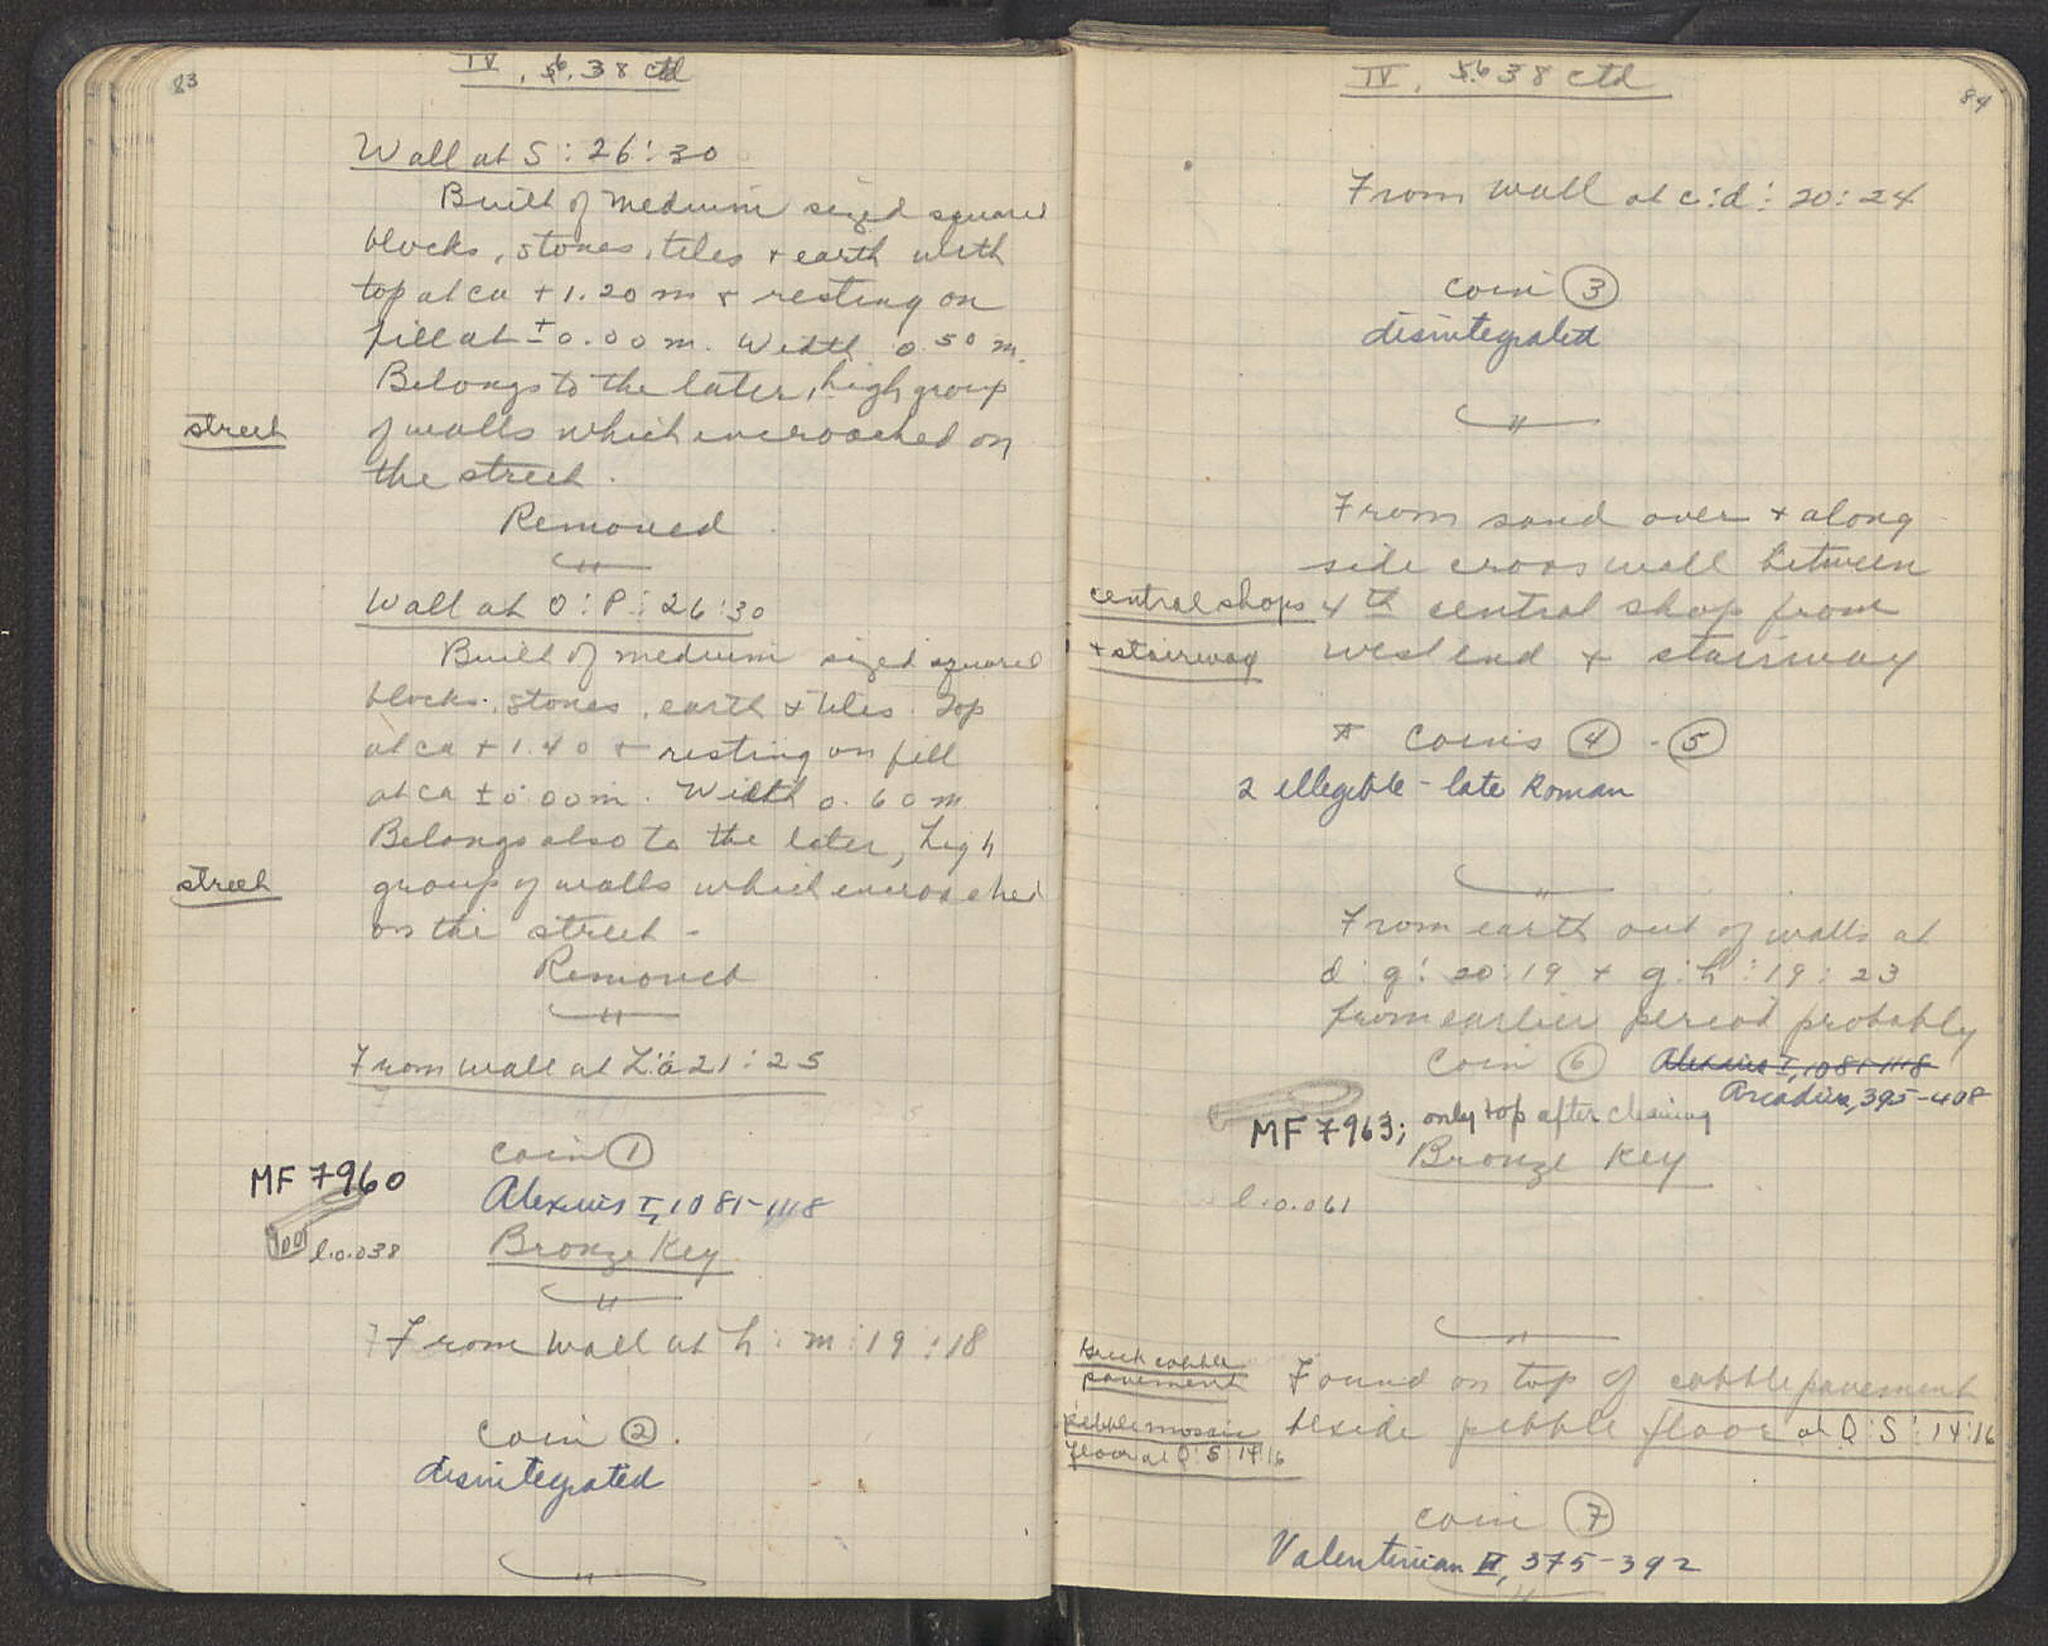 83
IV, 6.38 ctd
Wall at S:26:30
Built of medium sized squared
blocks, stones, tiles + earth with
top at ca +1.20 m + resting on
fill at ±0.00 m. Width 0.50 m.
Belongs to the later, high group
street
of walls which encroached on
the street.
Removed
Wall at O:P:26:30
Built of medium sized squared
blocks, stones, earth & tiles. Top
at ca +1.40 + resting on fill
at ca ±0.00 m. Width 0.60 m
Belongs also to the later, high
street
group of walls which encroached
on the street -
Removed
From wall at Z:ä 21:25
coin 1
MF 7960
Alexius I, 1081-1118
l.0.038
Bronze Key
From wall at h:m:19:18
coin 2.
disintegrated
84
IV, 6 38 ctd
From wall at c:d:20:24
coin 3
disintegrated
From sand over + along
side cross wall between
central shops
4th central shop from
+ stairway
west end + stairway
* coins 4 - 5
2 illegible - late Roman
From earth out of walls at
d:g:20:19 + g:h:19:23
from earlier period probably
coin 6 Alexius I, 1081-1118
Arcadius, 395-408
MF 7963; only top after cleaning
Bronze Key
l.0.061
Greek cobble
pavement
Found on top of cobble pavement
pebble mosaic
floor at Q:S:14:16
beside pebble floor at Q:S:14:16
coin 7
Valentinian II, 375-392